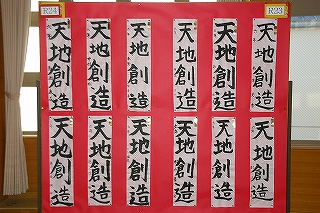 R24
R23
天地創造
天地創造
天地創造
天地創造
天地創造
天地創造
天地創造
天地創造
天地創造
天地創造
天地創造
天地創造